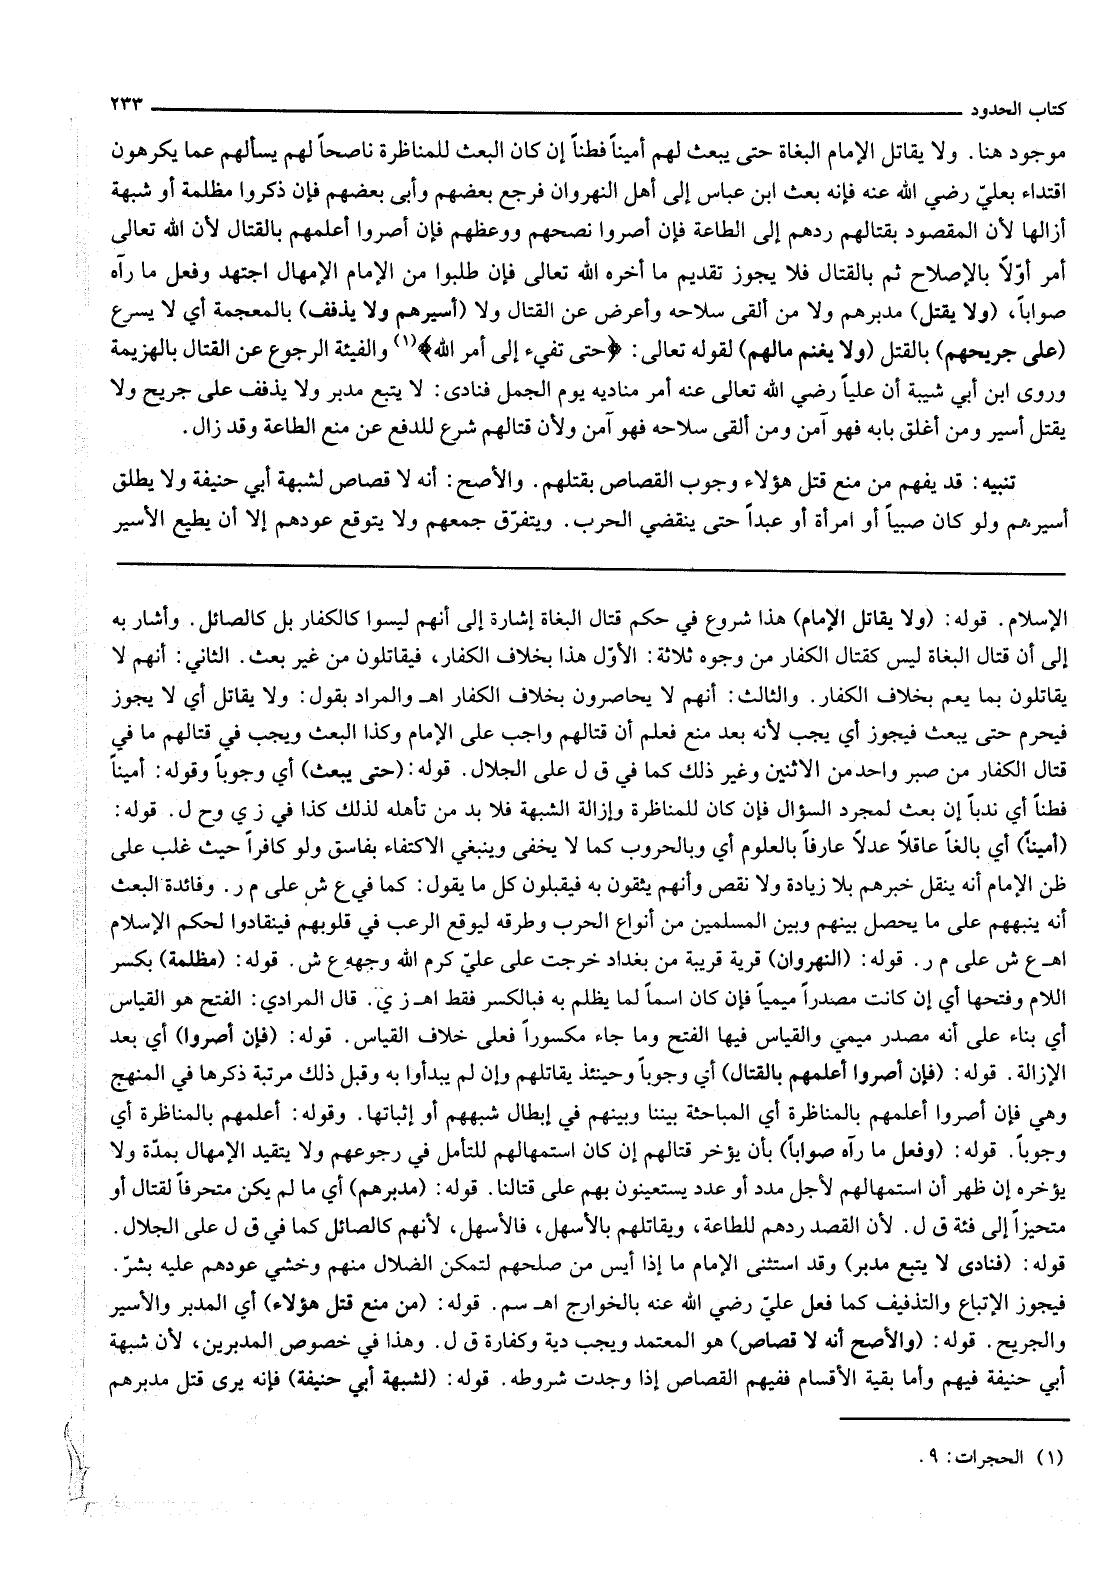 كتاب الحدود ٢٣٣
موجود هنا. ولا يقاتل الإمام البغاة حتى يبعث لهم أميناً فطناً إن كان البعث للمناظرة ناصحاً لهم يسألهم عما يكرهون
اقتداء بعليّ رضي الله عنه فإنه بعث ابن عباس إلى أهل النهروان فرجع بعضهم وأبى بعضهم فإن ذكروا مظلمة أو شبهة
أزالها لأن المقصود بقتالهم ردهم إلى الطاعة فإن أصروا نصحهم ووعظهم فإن أصروا أعلمهم بالقتال لأن الله تعالى
أمر أوّلاً بالإصلاح ثم بالقتال فلا يجوز تقديم ما أخره الله تعالى فإن طلبوا من الإمام الإمهال اجتهد وفعل ما رآه
صواباً، (ولا يقتل) مدبرهم ولا من ألقى سلاحه وأعرض عن القتال ولا (أسيرهم ولا يذفف) بالمعجمة أي لا يسرع
(على جريحهم) بالقتل (ولا يغنم مالهم) لقوله تعالى: ﴿حتى تفيء إلى أمر الله﴾(١) والفيئة الرجوع عن القتال بالهزيمة
وروى ابن أبي شيبة أن علياً رضي الله تعالى عنه أمر مناديه يوم الجمل فنادى: لا يتبع مدبر ولا يذفف على جريح ولا
يقتل أسير ومن أغلق بابه فهو آمن ومن ألقى سلاحه فهو آمن ولأن قتالهم شرع للدفع عن منع الطاعة وقد زال.
تنبيه: قد يفهم من منع قتل هؤلاء وجوب القصاص بقتلهم. والأصح: أنه لا قصاص لشبهة أبي حنيفة ولا يطلق
أسيرهم ولو كان صبياً أو امرأة أو عبداً حتى ينقضي الحرب. ويتفرّق جمعهم ولا يتوقع عودهم إلا أن يطيع الأسير
الإسلام. قوله: (ولا يقاتل الإمام) هذا شروع في حكم قتال البغاة إشارة إلى أنهم ليسوا كالكفار بل كالصائل. وأشار به
إلى أن قتال البغاة ليس كقتال الكفار من وجوه ثلاثة: الأوّل هذا بخلاف الكفار، فيقاتلون من غير بعث. الثاني: أنهم لا
يقاتلون بما يعم بخلاف الكفار. والثالث: أنهم لا يحاصرون بخلاف الكفار اهـ والمراد بقول: ولا يقاتل أي لا يجوز
فيحرم حتى يبعث فيجوز أي يجب لأنه بعد منع فعلم أن قتالهم واجب على الإمام وكذا البعث ويجب في قتالهم ما في
قتال الكفار من صبر واحد من الاثنين وغير ذلك كما في ق ل على الجلال. قوله: (حتى يبعث) أي وجوباً وقوله: أميناً
فطناً أي ندباً إن بعث لمجرد السؤال فإن كان للمناظرة وإزالة الشبهة فلا بد من تأهله لذلك كذا في ز ي وح ل. قوله:
(أميناً) أي بالغاً عاقلاً عدلاً عارفاً بالعلوم أي وبالحروب كما لا يخفى وينبغي الاكتفاء بفاسق ولو كافراً حيث غلب على
ظن الإمام أنه ينقل خبرهم بلا زيادة ولا نقص وأنهم يثقون به فيقبلون كل ما يقول: كما في ع ش على م ر. وفائدة البعث
أنه ينبههم على ما يحصل بينهم وبين المسلمين من أنواع الحرب وطرقه ليوقع الرعب في قلوبهم فينقادوا لحكم الإسلام
اهـ ع ش على م ر. قوله: (النهروان) قرية قريبة من بغداد خرجت على عليّ كرم الله وجهه ع ش. قوله: (مظلمة) بكسر
اللام وفتحها أي إن كانت مصدراً ميمياً فإن كان اسماً لما يظلم به فبالكسر فقط اهـ ز ي. قال المرادي: الفتح هو القياس
أي بناء على أنه مصدر ميمي والقياس فيها الفتح وما جاء مكسوراً فعلى خلاف القياس. قوله: (فإن أصروا) أي بعد
الإزالة. قوله: (فإن أصروا أعلمهم بالقتال) أي وجوباً وحينئذ يقاتلهم وإن لم يبدأوا به وقبل ذلك مرتبة ذكرها في المنهج
وهي فإن أصروا أعلمهم بالمناظرة أي المباحثة بيننا وبينهم في إبطال شبههم أو إثباتها. وقوله: أعلمهم بالمناظرة أي
وجوباً. قوله: (وفعل ما رآه صواباً) بأن يؤخر قتالهم إن كان استمهالهم للتأمل في رجوعهم ولا يتقيد الإمهال بمدّة ولا
يؤخره إن ظهر أن استمهالهم لأجل مدد أو عدد يستعينون بهم على قتالنا. قوله: (مدبرهم) أي ما لم يكن متحرفاً لقتال أو
متحيزاً إلى فئة ق ل. لأن القصد ردهم للطاعة، ويقاتلهم بالأسهل، فالأسهل، لأنهم كالصائل كما في ق ل على الجلال.
قوله: (فنادى لا يتبع مدبر) وقد استثنى الإمام ما إذا أيس من صلحهم لتمكن الضلال منهم وخشي عودهم عليه بشرّ.
فيجوز الإتباع والتذفيف كما فعل عليّ رضي الله عنه بالخوارج اهـ سم. قوله: (من منع قتل هؤلاء) أي المدبر والأسير
والجريح. قوله: (والأصح أنه لا قصاص) هو المعتمد ويجب دية وكفارة ق ل. وهذا في خصوص المدبرين، لأن شبهة
أبي حنيفة فيهم وأما بقية الأقسام ففيهم القصاص إذا وجدت شروطه. قوله: (لشبهة أبي حنيفة) فإنه يرى قتل مدبرهم
(١) الحجرات: ٩.